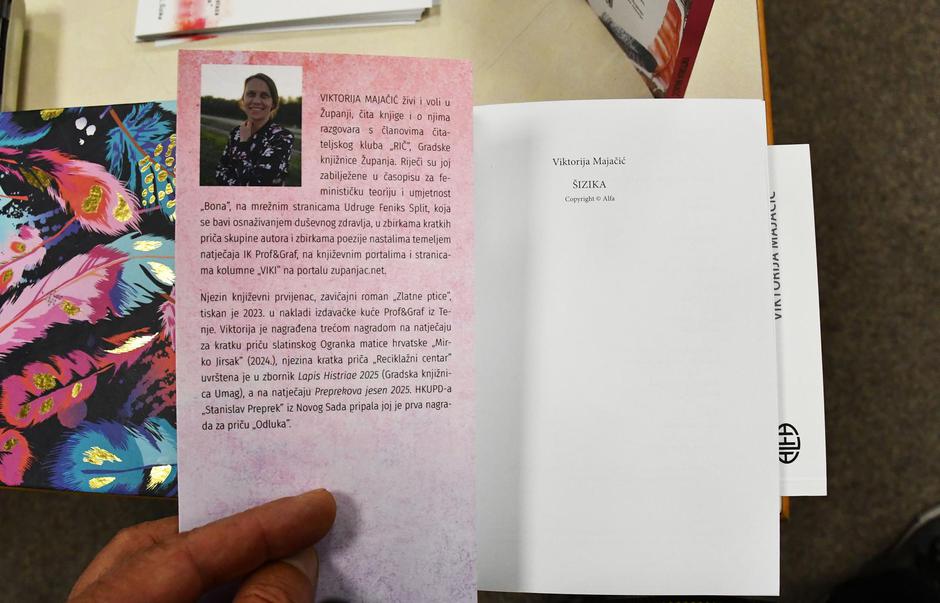 VIKTORIJA MAJAČIĆ živi i voli u
Županji, čita knjige i o njima
razgovara s članovima čita-
teljskog kluba „RIČ”, Gradske
knjižnice Županja. Riječi su joj
zabilježene u časopisu za fe-
minističku teoriju i umjetnost
„Bona”, na mrežnim stranicama Udruge Feniks Split, koja
se bavi osnaživanjem duševnog zdravlja, u zbirkama kratkih
priča skupine autora i zbirkama poezije nastalima temeljem
natječaja IK Prof&Graf, na književnim portalima i stranica-
ma kolumne „VIKI” na portalu zupanjac.net.
Njezin književni prvijenac, zavičajni roman „Zlatne ptice”,
tiskan je 2023. u nakladi izdavačke kuće Prof&Graf iz Te-
nje. Viktorija je nagrađena trećom nagradom na natječaju
za kratku priču slatinskog Ogranka matice hrvatske „Mir-
ko Jirsak” (2024.), njezina kratka priča „Reciklažni centar”
uvrštena je u zbornik Lapis Histriae 2025 (Gradska knjižni-
ca Umag), a na natječaju Preprekova jesen 2025. HKUPD-a
„Stanislav Preprek” iz Novog Sada pripala joj je prva nagra-
da za priču „Odluka”.
Viktorija Majačić
ŠIZIKA
Copyright © Alfa
VIKTORIJA MAJAČIĆ
ALFA